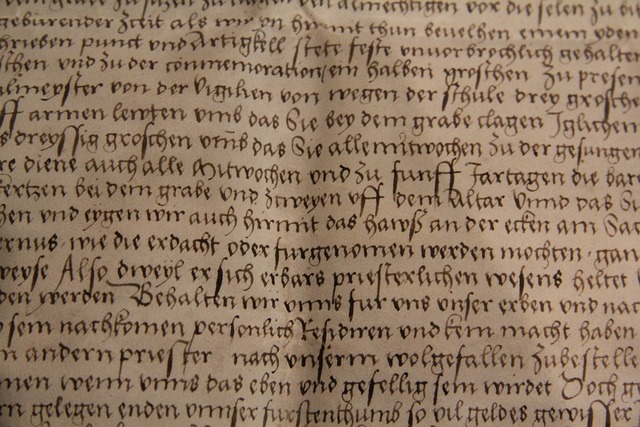 almechtigen vor die selen zu
geburender Zceit als wir yn hirmit thun bevelhen einem yden
hrieben punct und Artigkell stete feste unvorbrochlich gehalten
schen und zu der commemoration ein halben groschen zu presen
ulmeyster von der Vigilien von wegen der schule drey grosche
uff armen lewten umb das Sie bey dem grabe clagen Iglichen
s dreyssig groschen umb das Sie alle mitwochen zu der gesungen
re diene auch alle Mitwochen und zu funff Jartagen die bare
kertzen bei dem grabe und zcweyen uff dem Altar Unnd das Si
hen und eygen wir auch hirmit das hawß an der ecken am Sac
ernus wie die erdacht oder furgenomen werden mochten gan
weyse Also dweyl er sich erbars priesterlichen wesens heltet
den werden Behalten wir unns fur uns unser erben und nac
sein nachkomen personlich Residiren und kein macht haben
n andern priester nach unserm wolgefallen zubestelle
men wenn unns das eben und gefellig sein wirdet Doch g
rn gelegen enden unnser furstenthumb so vil geldes gewisser